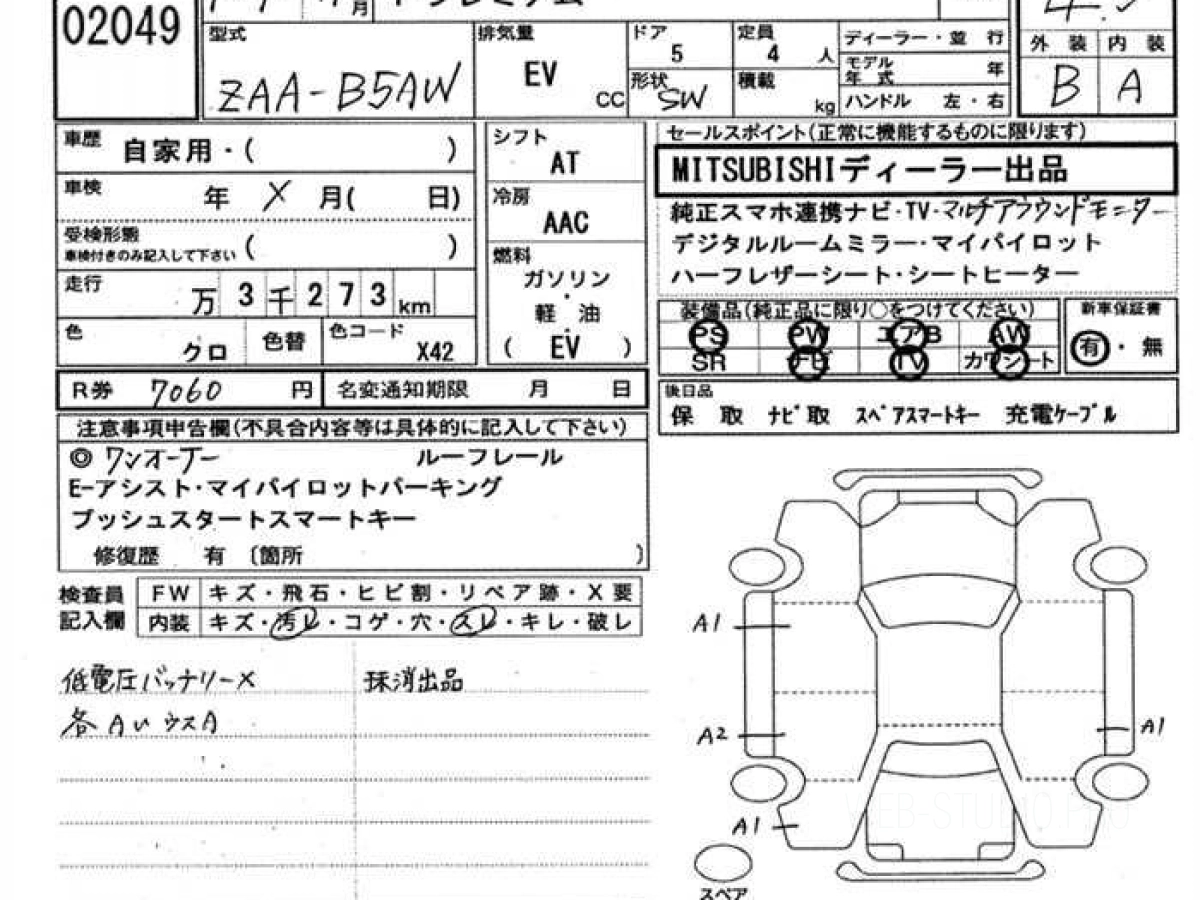 02049
月
型式 ZAA-B5AW
排気量 EV CC
ドア 5
形状 SW
定員 4 人
積載 kg
ディーラー・並 行
モデル年 式 年
ハンドル 左・右
外 装 内 装
B A
車歴 自家用・( )
車検 年 X 月( 日)
受検形態 車検付きのみ記入して下さい ( )
走行 万 3 千 2 7 3 km
色 クロ 色替 色コード X42
シフト AT
冷房 AAC
燃料
ガソリン
・
軽 油
・
( EV )
セールスポイント(正常に機能するものに限ります)
MITSUBISHIディーラー出品
純正スマホ連携ナビ・TV・マルチアラウンドモニター
デジタルルームミラー・マイパイロット
ハーフレザーシート・シートヒーター
装備品(純正品に限り○をつけてください)
PS PW エアB AW
SR ナビ TV カワシート
新車保証書
有・無
R券 7060 円 名変通知期限 月 日
後日品
保 取 ナビ取 スペアスマートキー 充電ケーブル
注意事項申告欄(不具合内容等は具体的に記入して下さい)
◎ ワンオーナー ルーフレール
E-アシスト・マイパイロットパーキング
プッシュスタートスマートキー
修復歴 有 〔箇所 〕
検査員記入欄
FW キズ・飛石・ヒビ割・リペア跡・X要
内装 キズ・汚レ・コゲ・穴・スレ・キレ・破レ
低電圧バッテリーX
各AいウスA
抹消出品
A1
A2
A1
A1
スペア
WEB-STUDIO.PRO